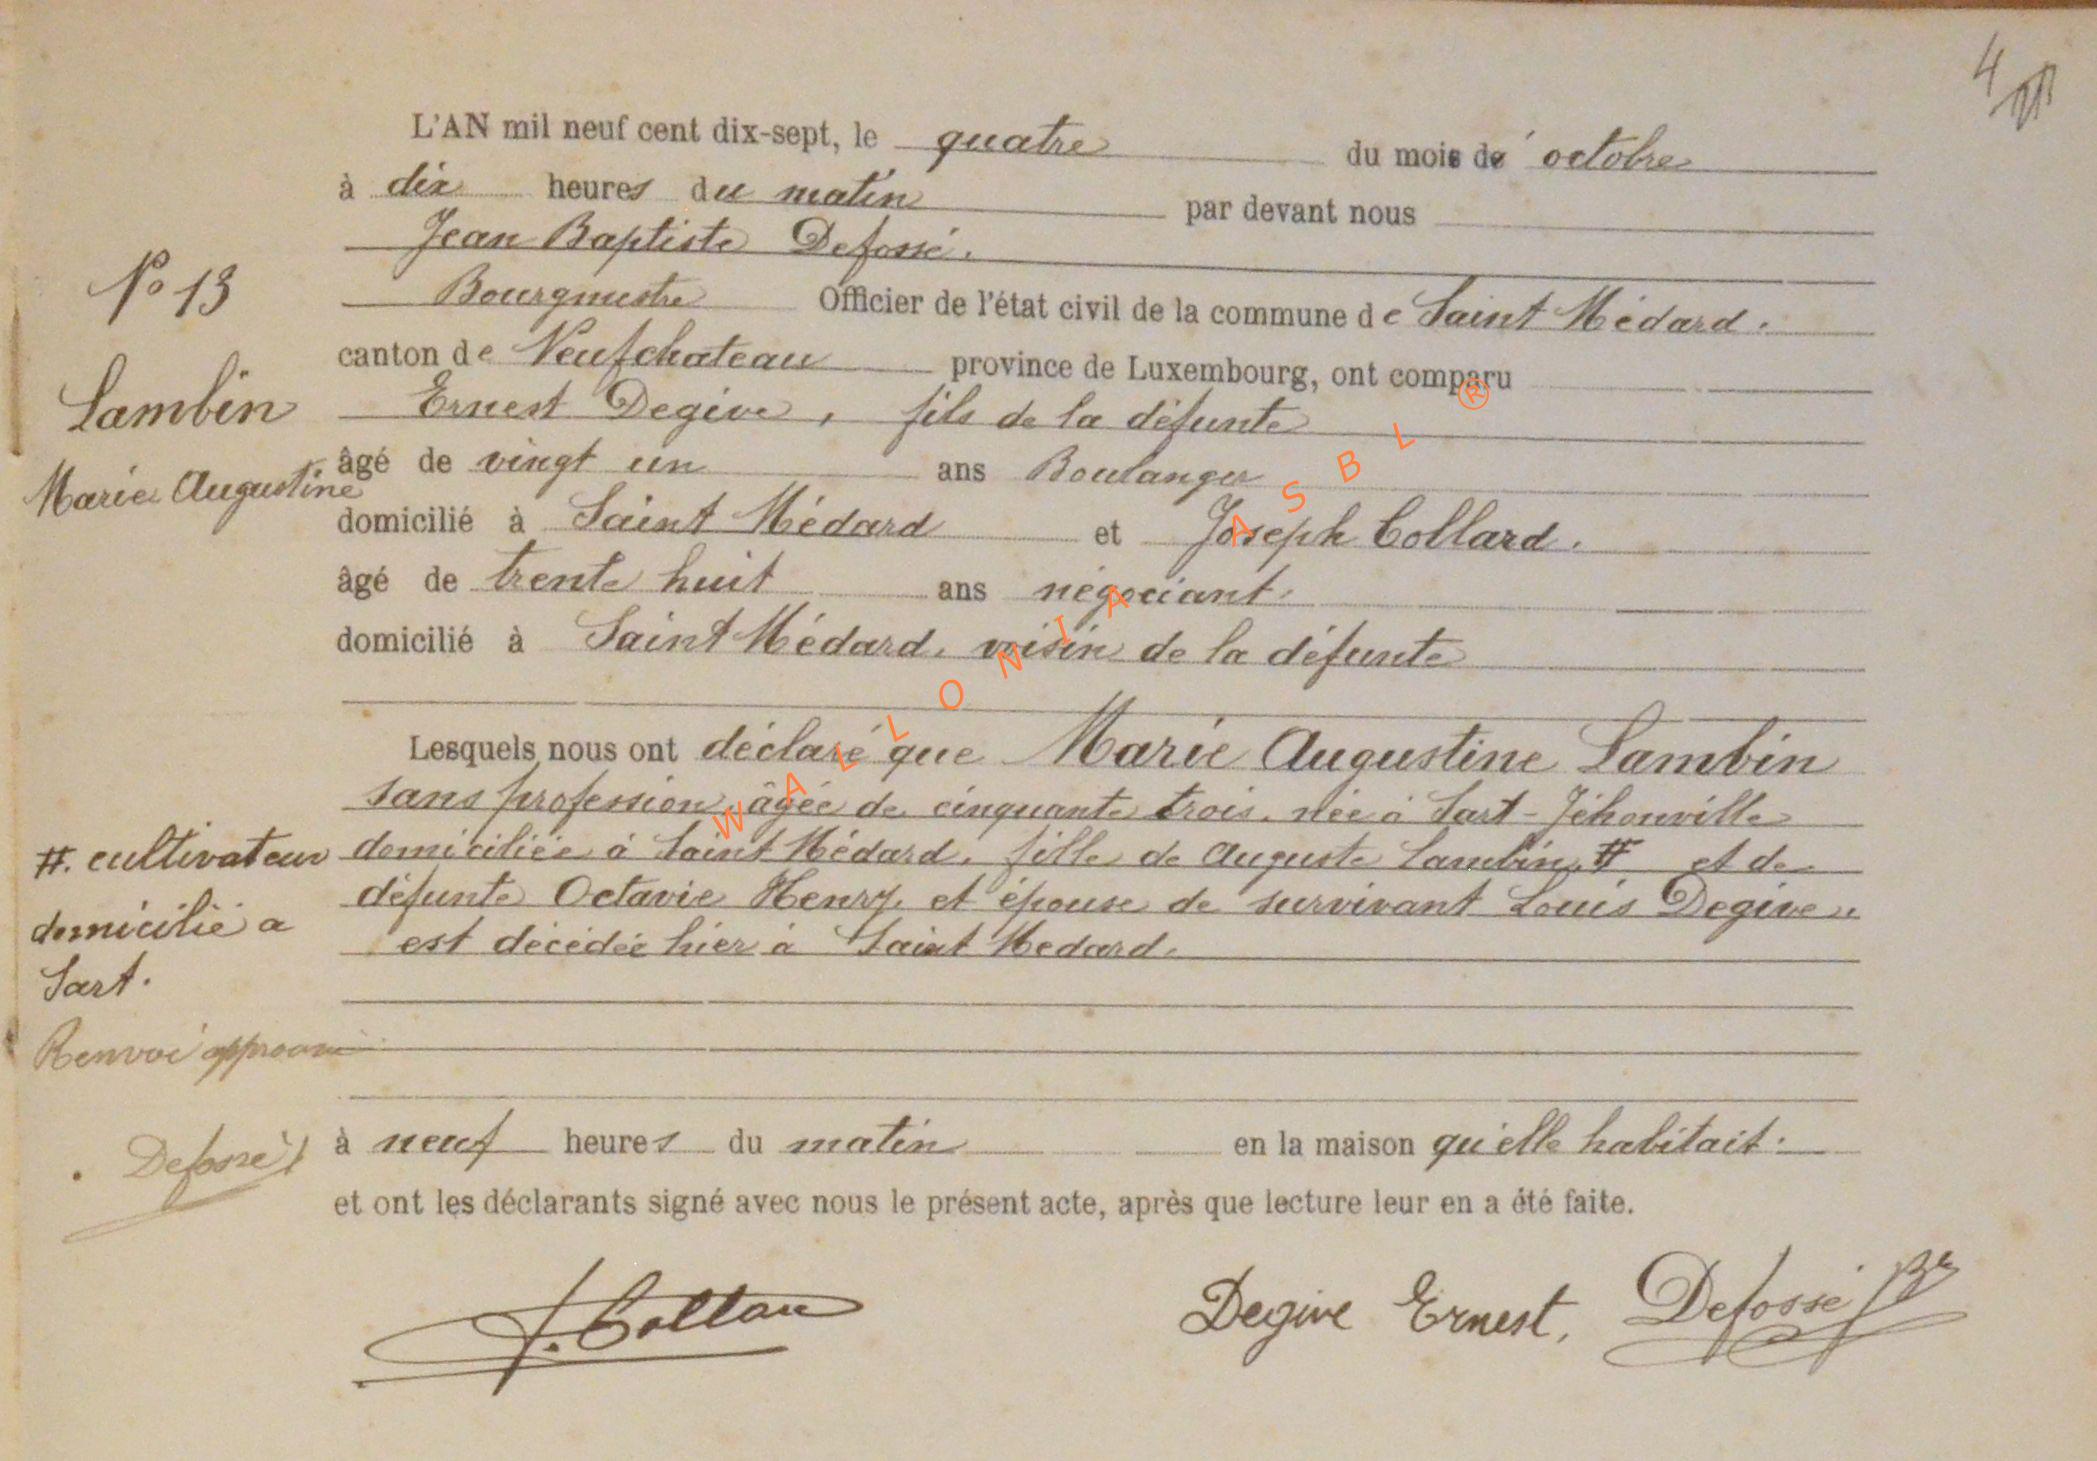 4
L'AN mil neuf cent dix-sept, le quatre du mois de octobre
à dix heures du matin par devant nous
Jean Baptiste Defossé.
Bourgmestre Officier de l'état civil de la commune de Saint Médard.
canton de Neufchateau province de Luxembourg, ont comparu
Ernest Degive, fils de la défunte
âgé de vingt un ans Boulanger
domicilié à Saint Médard et Joseph Collard.
âgé de trente huit ans négociant.
domicilié à Saint Médard, voisin de la défunte
Lesquels nous ont déclaré que Marie Augustine Lambin
sans profession, âgée de cinquante trois, née à Sart-Jéhonville
domiciliée à Saint Médard, fille de Auguste Lambin, # et de
défunte Octavie Henry, et épouse de survivant Louis Degive
est décédée hier à Saint Médard.
à neuf heures du matin en la maison qu'elle habitait.
et ont les déclarants signé avec nous le présent acte, après que lecture leur en a été faite.
J. Collard Degive Ernest, Defossé
No 13
Lambin
Marie Augustine
#. cultivateur
domicilié a
Sart.
Renvoi approuvé
Defossé
WALLONIA ASBL ®